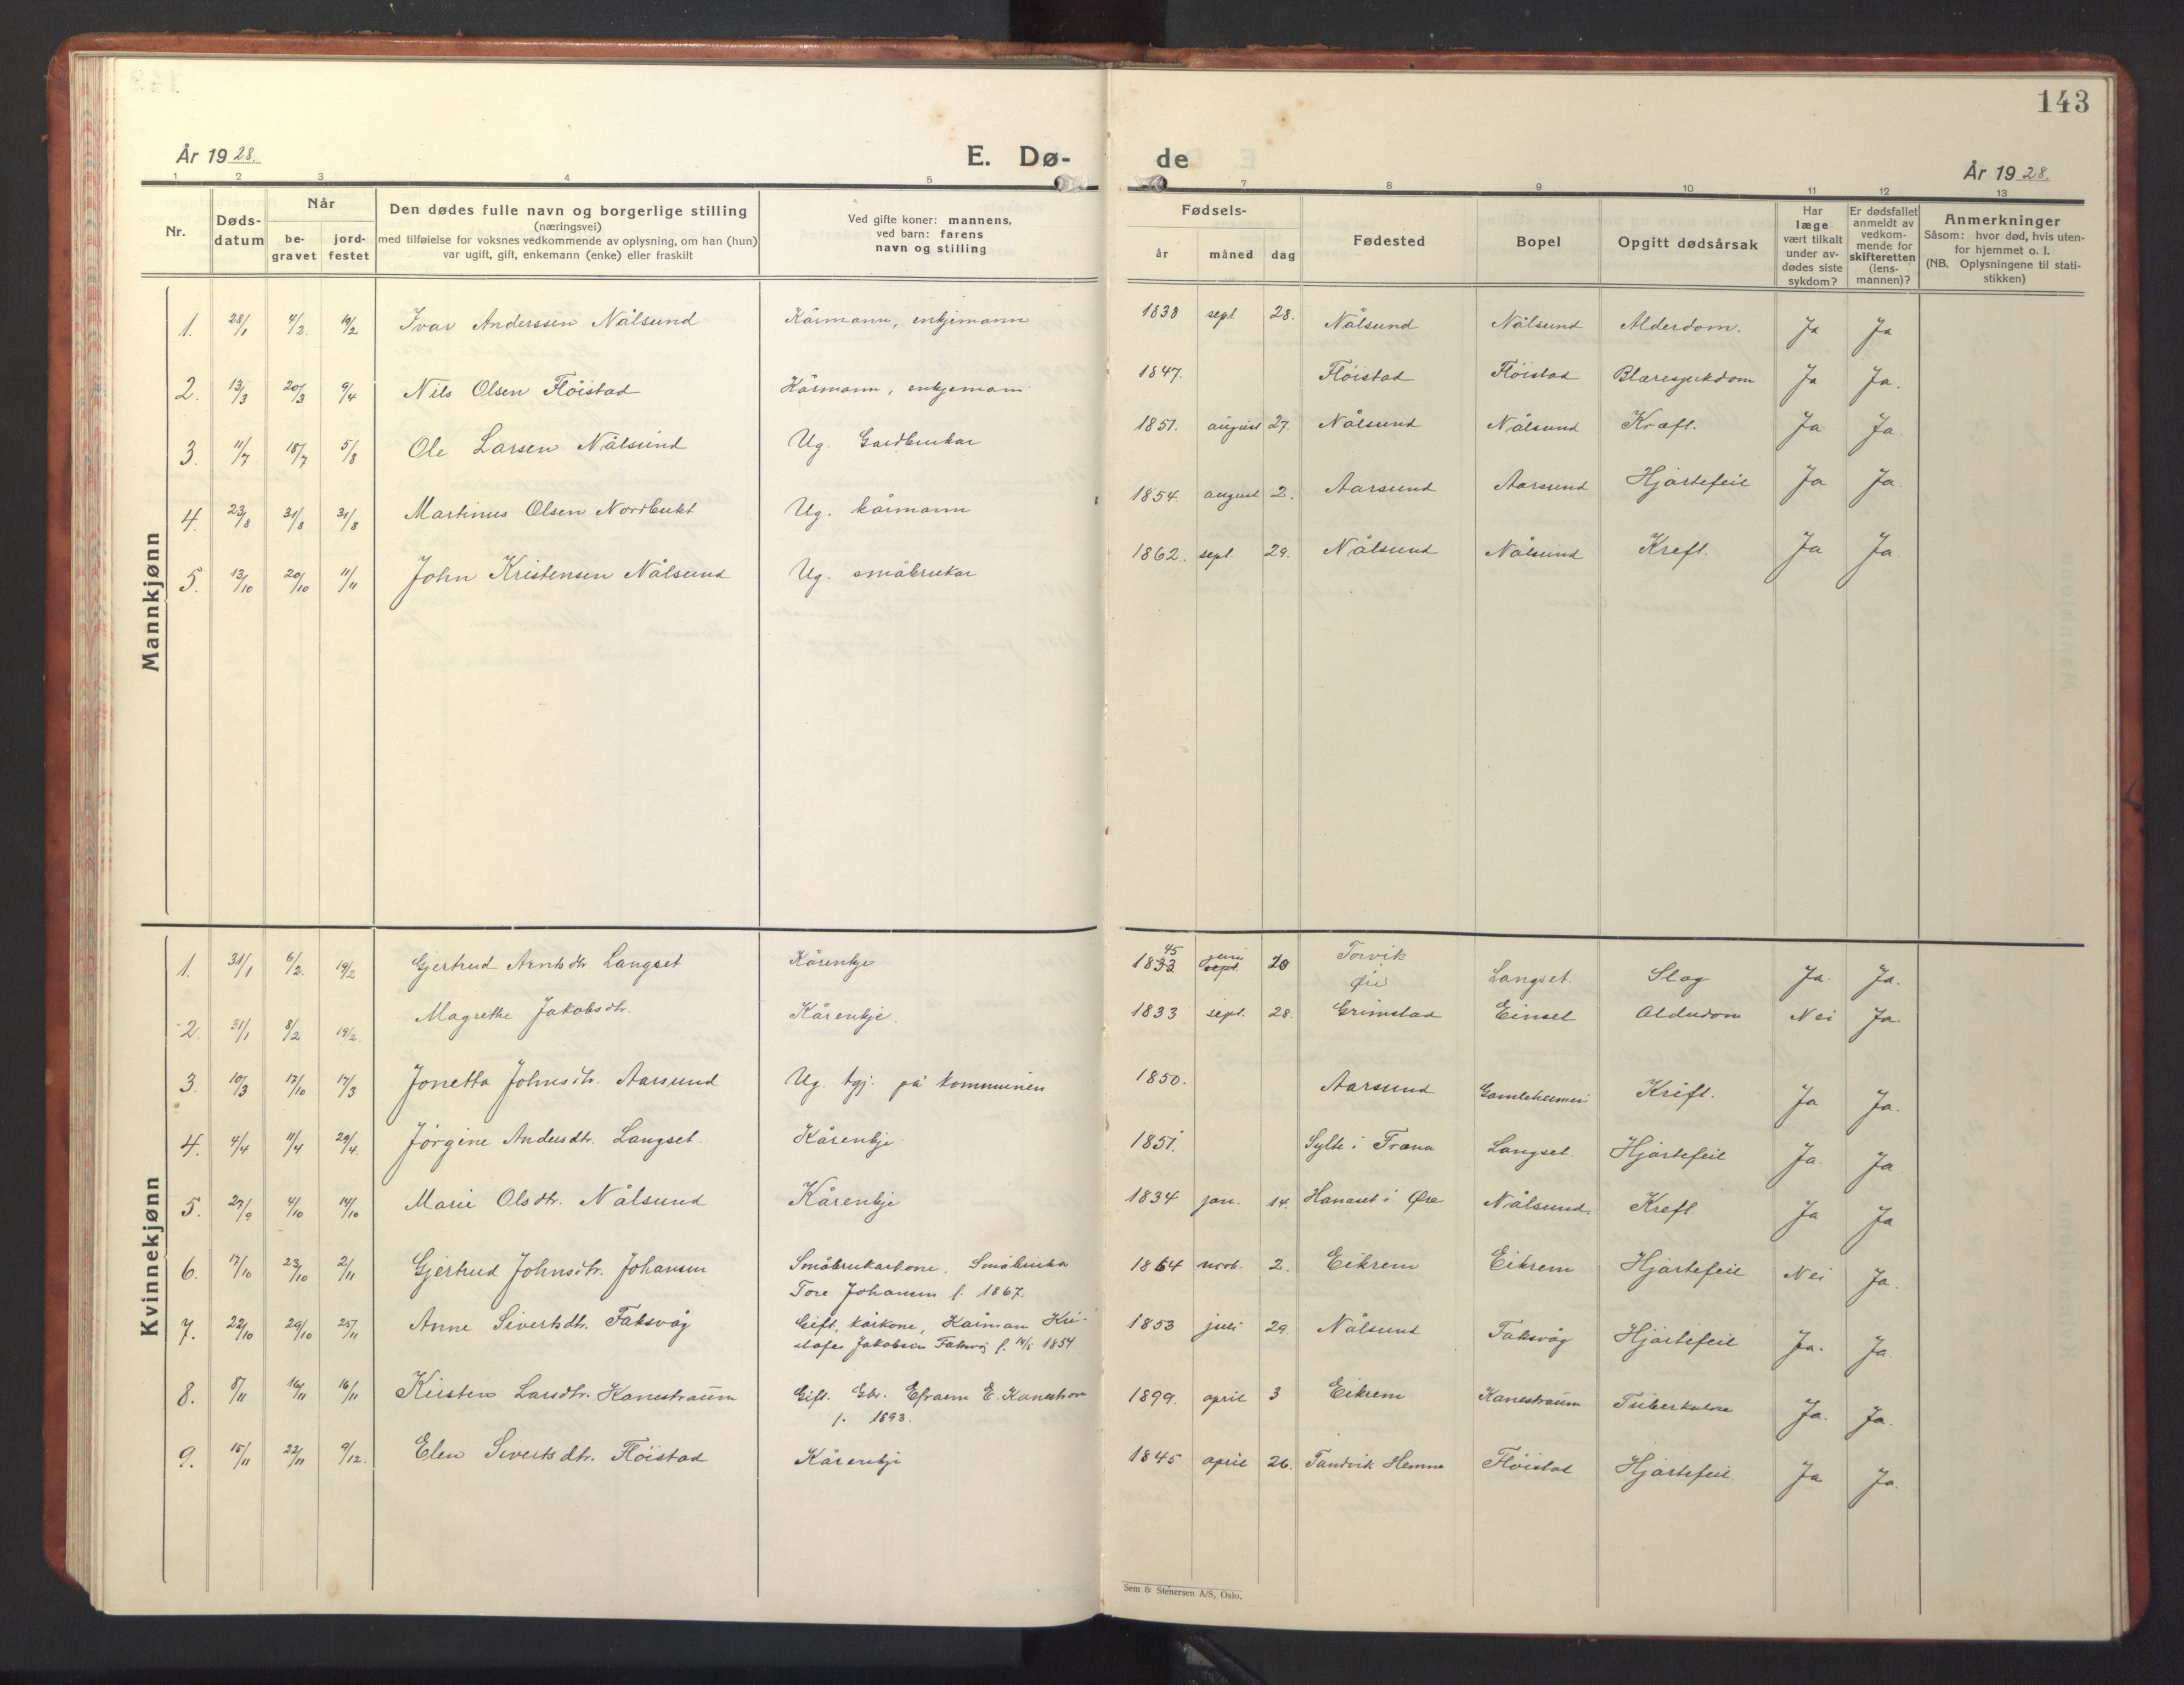 143
År 1928.
E. Dø-
de
År 1928.
1 2 3 4 5 7 8 9 10 11 12 13
Nr.
Døds-
datum
Når
be-
gravet
jord-
festet
Den dødes fulle navn og borgerlige stilling
(næringsvei)
med tilføielse for voksnes vedkommende av oplysning, om han (hun)
var ugift, gift, enkemann (enke) eller fraskilt
Ved gifte koner: mannens,
ved barn: farens
navn og stilling
Fødsels-
år måned dag
Fødested
Bopel
Opgitt dødsårsak
Har
læge
vært tilkalt
under av-
dødes siste
sykdom?
Er dødsfallet
anmeldt av
vedkom-
mende for
skifteretten
(lens-
mannen)?
Anmerkninger
Såsom: hvor død, hvis uten-
for hjemmet o. l.
(NB. Oplysningene til stati-
stikken)
Mannkjønn
1. 28/1 4/2. 19/2 Ivar Anderssen Nålsund Kårmann, enkjemann 1838 sept. 28. Nålsund Nålsund Alderdom. Ja Ja
2. 13/3 20/3 9/4 Nils Olsen Flöistad Kårmann, enkjemann 1847. Flöistad Flöistad Blæresjukdom Ja Ja.
3. 11/7 18/7 5/8 Ole Larsen Nålsund Ug. Gardbrukar 1851. august 27. Nålsund Nålsund Kræft. Ja Ja.
4. 23/8 31/8 31/8 Martinus Olsen Nordbukt Ug. kårmann 1854. august 2. Aarsund Aarsund Hjartefeil Ja Ja.
5. 13/10 20/10 11/11 John Kristensen Nålsund Ug. småbrukar 1862. sept. 29. Nålsund Nålsund Kreft. Ja Ja.
Kvinnekjønn
1. 31/1 6/2. 19/2 Gjertrud Arntsdtr. Langset Kårenkje 1833 45 sept. juni 20 Torvik Øre Langset. Slag Ja. Ja.
2. 31/1 8/2 19/2. Magrethe Jakobsdtr. Kårenkje. 1833 sept. 28. Grimstad Einset Alderdom Nei Ja.
3. 10/3 17/10 17/3 Jonetta Johnsdtr. Aarsund Ug. tgj. på kommunen 1850. Aarsund Kreft. Ja Ja.
4. 4/4 11/4 29/4. Jörgine Andersdtr. Langset. Kårenkje 1851. Sylte i Fræna Langset. Hjartefeil Ja. Ja
5. 27/9 4/10 14/10 Marie Olsdtr. Nålsund Kårenkje 1834 jan. 14. Hanaset i Øre Nålsund. Kreft. Ja Ja
6. 17/10 23/10 2/11 Gjertrud Johnsdtr. Johansen Småbrukarkone. Småbrukar 1864 novb. 2. Eikrem Eikrem Hjartefeil Nei Ja.
Tore Johansen f. 1867.
7. 22/10 29/10 25/11 Anne Sivertsdtr. Faksvåg Gift, kårkone, Kårmann Kri- 1853 juli 29. Nålsund Faksvåg Hjartefeil Ja. Ja
stofer Jakobsen Faksvåg f. 14/5 1854
8. 8/11 16/11 16/11 Kirsten Larsdtr. Kanestraum Gift. Gbr. Efraem E. Kanestrom 1899. april 3 Eikrem Kanestraum Tuberkulose Ja. Ja.
f. 1893.
9. 15/11 22/11 9/12. Elen Sivertsdtr. Flöistad Kårenkje 1845 april 26. Tandvik Hemne Flöistad Hjartefeil Ja Ja.
Sem & Stenersen A/S, Oslo.